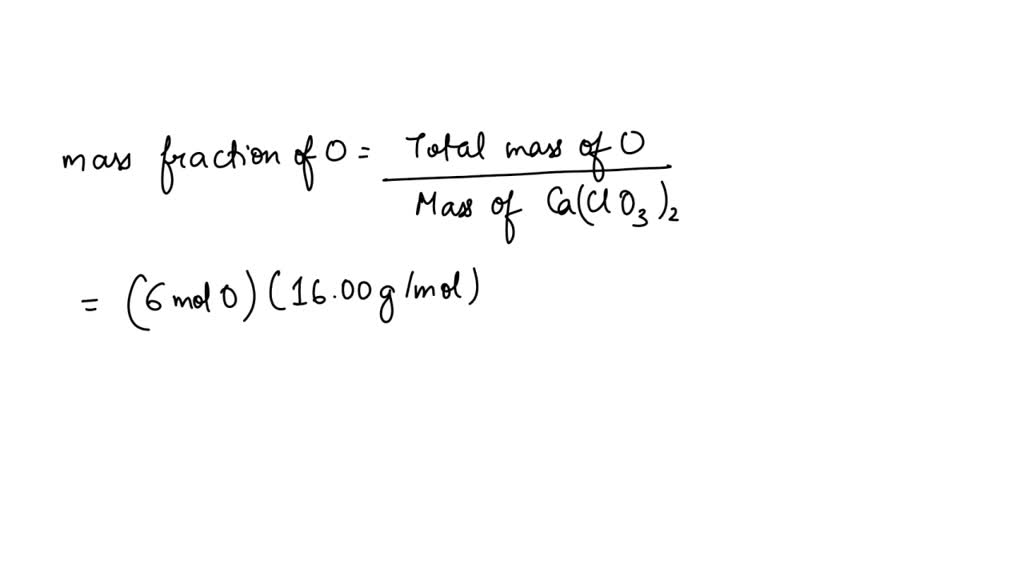 mass fraction of O = Total mass of O
Mass of Ca(ClO3)2
= (6 mol O) (16.00 g/mol)